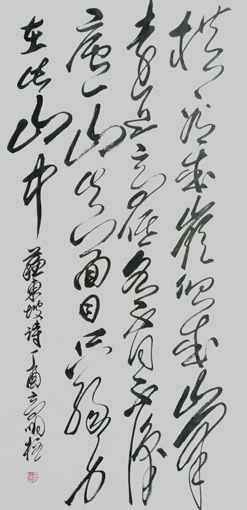 横看成嶺側成峯
遠近高低各不同不識
廬山真面目只緣身
在此山中
蘇東坡詩丁酉